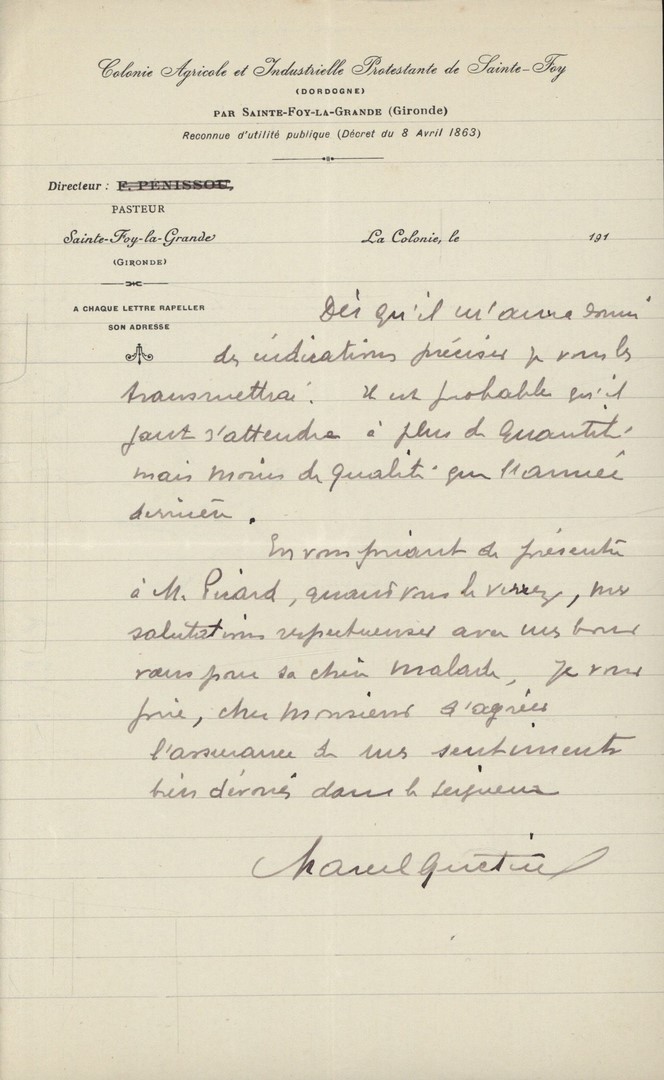 Colonie Agricole et Industrielle Protestante de Sainte-Foy
(DORDOGNE)
PAR SAINTE-FOY-LA-GRANDE (Gironde)
Reconnue d'utilité publique (Décret du 8 Avril 1863)
Directeur : F. PÉNISSOU,
PASTEUR
Sainte-Foy-la-Grande
(GIRONDE)
La Colonie, le 191
A CHAQUE LETTRE RAPELLER
SON ADRESSE
Dès qu'il m'aura donné
des indications précises je vous les
transmettrai. Il est probable qu'il
faut s'attendre à plus de quantité
mais moins de qualité que l'année
dernière.
En vous priant de présenter
à M. Picard, quand vous le verrez, mes
salutations respectueuses avec mes bons
vœux pour sa chère malade, je vous
prie, cher Monsieur d'agréer
l'assurance de mes sentiments
bien dévoués dans le Seigneur
Marcel